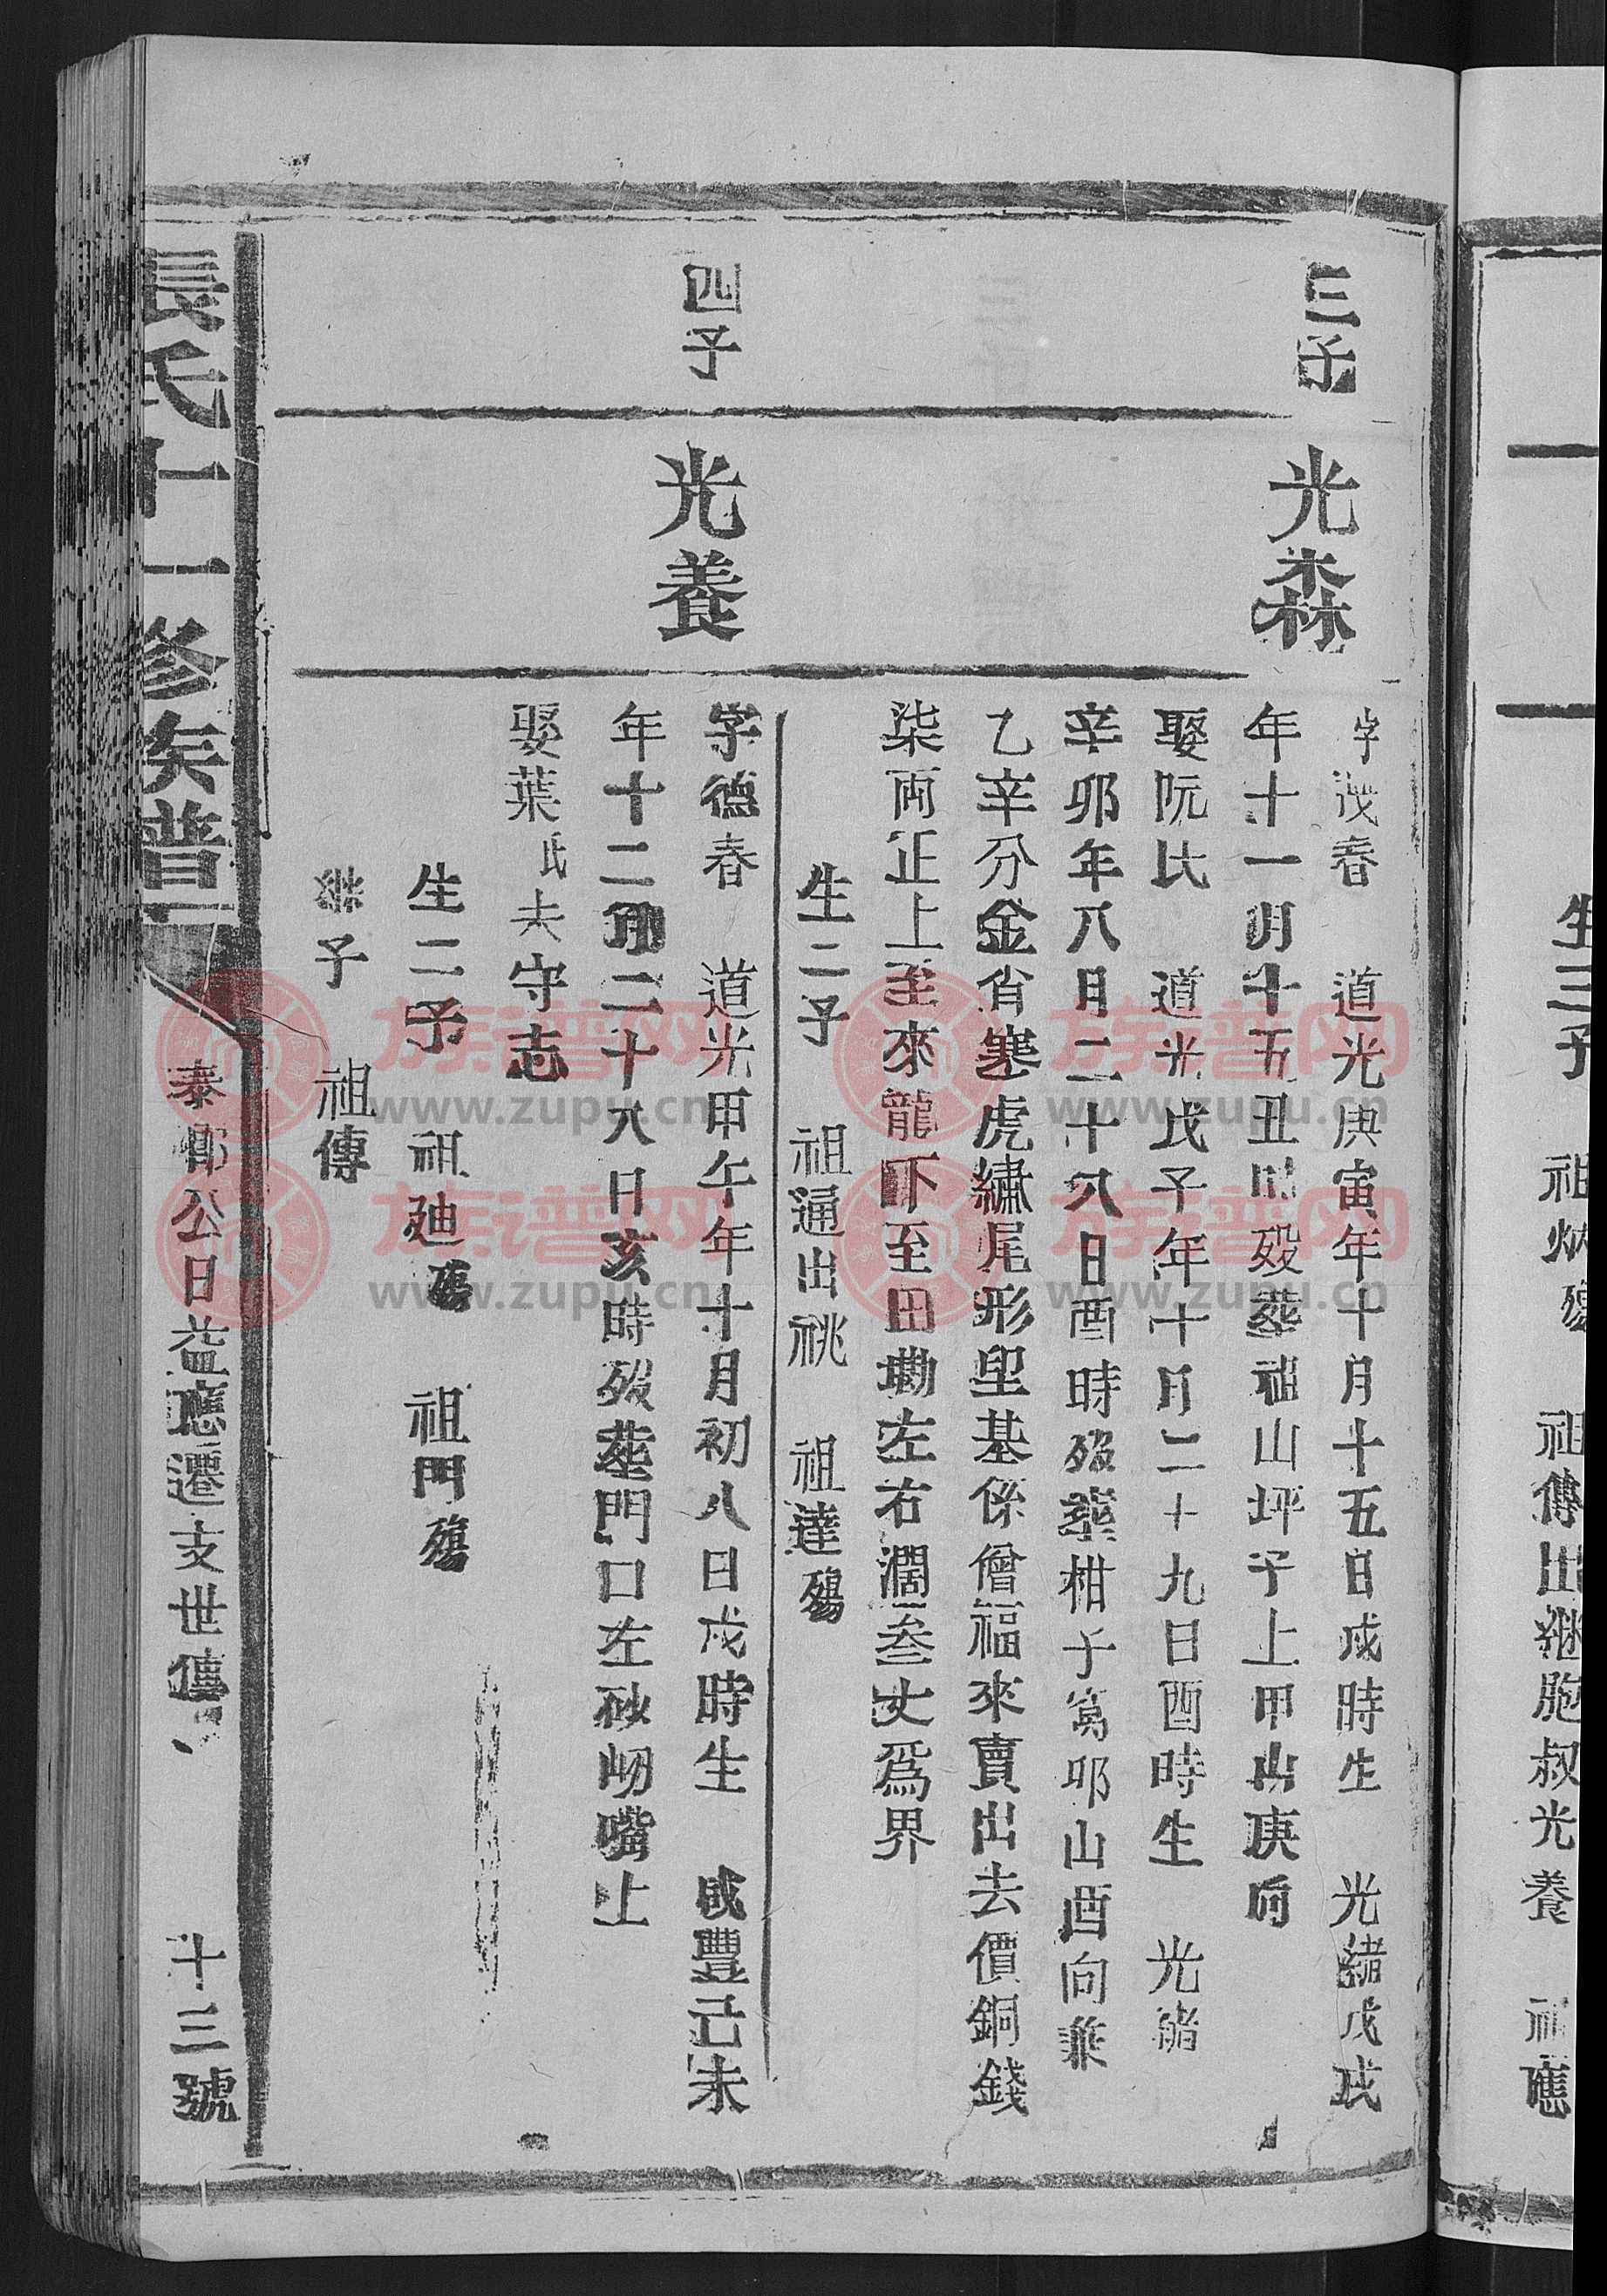 生三子 祖炳殤 祖傳出繼胞叔光養 祖應
三子
光森
字茂春 道光庚寅年十月十五日戌時生 光緒戊戌
年十一月十五丑時歿葬祖山坪子上甲山庚向
娶阮氏 道光戊子年十月二十九日酉時生 光緒
辛卯年八月二十八日酉時歿葬柑子窩卯山酉向兼
乙辛分金省塞虎繡尾形墾基係僧福來賣出去價銅錢
柒両正上至來龍下至田墈左右濶叁丈爲界
生二子 祖通出祧 祖達殤
四子
光養
字德春 道光甲午年十月初八日戌時生 咸豐己未
年十二月二十八日亥時歿葬門口左砂坳嘴上
娶葉氏夫守志
生二子 祖廸殤 祖門殤
継子 祖傳
張氏十一修族譜
泰郎公日益應遷支世傳
十三號
族谱网
www.zupu.cn
族谱网
www.zupu.cn
族谱网
www.zupu.cn
族谱网
www.zupu.cn